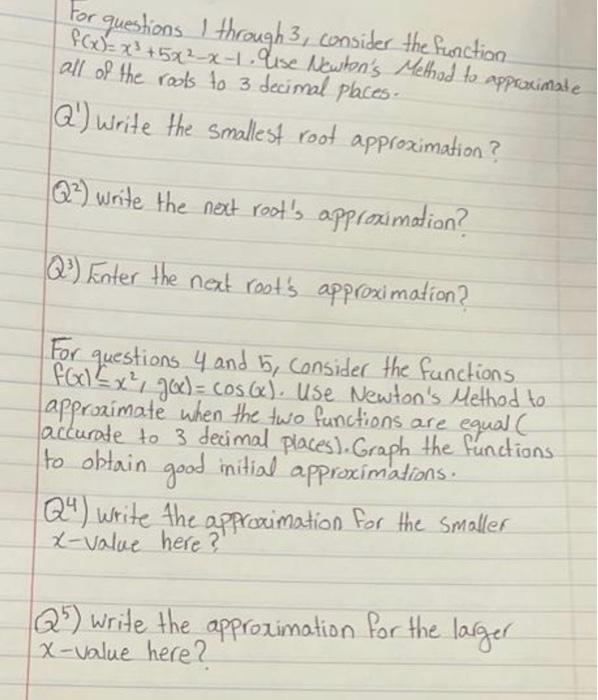 For questions 1 through 3, consider the function
f(x)= x³ +5x²-x-1. Use Newton's Method to approximate
all of the roots to 3 decimal places.
Q¹) write the smallest root approximation?
Q²) write the next root's approximation?
Q³) Enter the next root's approximation?
For questions 4 and 5, consider the functions
f(x)=x², g(x)= cos(x). Use Newton's Method to
approximate when the two functions are equal (
accurate to 3 decimal places). Graph the functions
to obtain good initial approximations.
Q⁴) write the approximation for the smaller
x-value here?
Q⁵) write the approximation for the larger
x-value here?